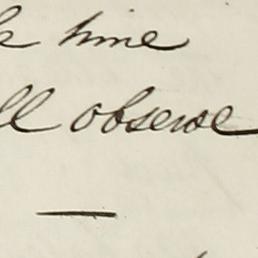 time
ll observe
—